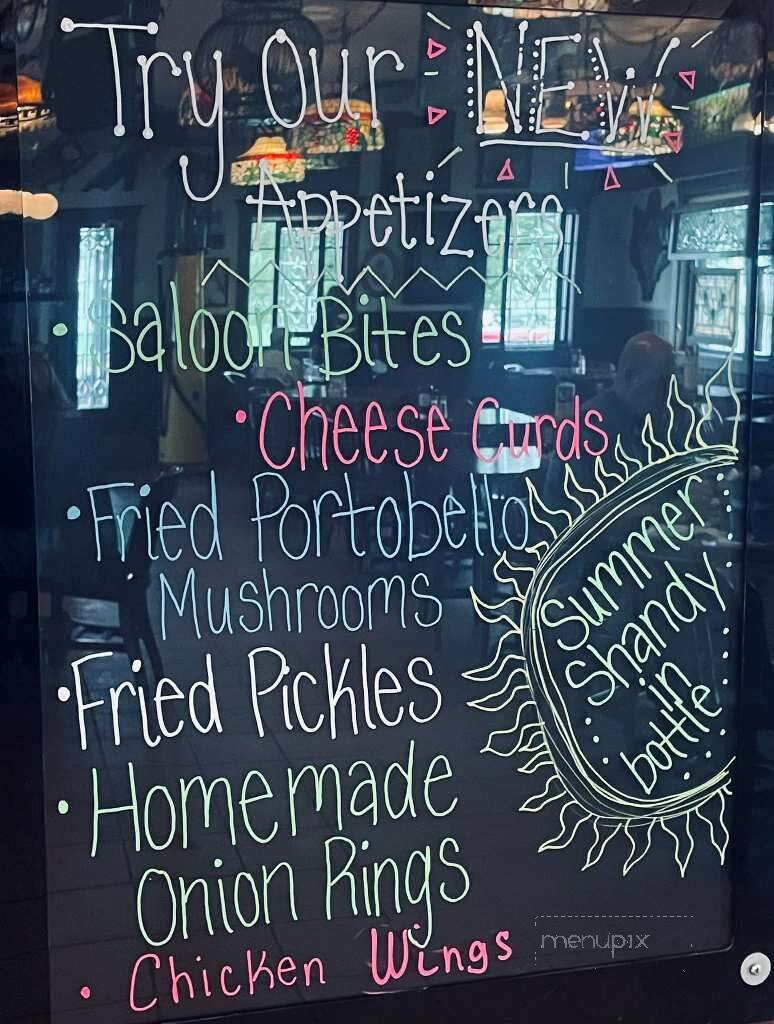 Try Our NEW
Appetizers
• Saloon Bites
• Cheese Curds
• Fried Portobello
Mushrooms
• Fried Pickles
• Homemade
Onion Rings
• Chicken Wings
Summer
Shandy
in
bottle
menupix